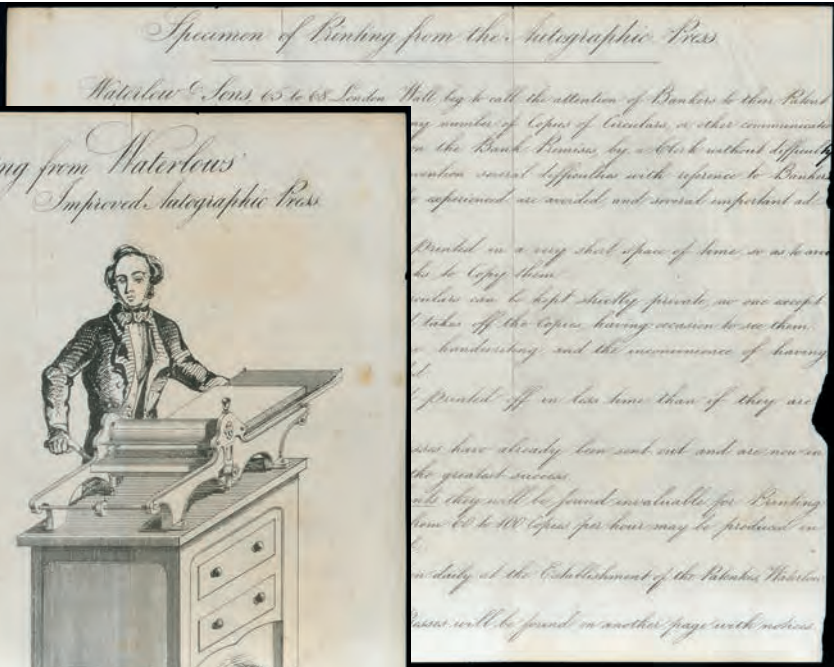 Specimen of Printing from the Autographic Press.
Waterlow & Sons, 65 to 68 London Wall, beg to call the attention of Bankers to their Patent
ny number of Copies of Circulars, or other communicatio
on the Bank Premises, by a Clerk without difficulty
vention several difficulties with reference to Bankers
experienced are avoided, and several important ad
Printed in a very short space of time, so as to avoi
ks to Copy them
culars can be kept strictly private, no one except
takes off the Copies, having occasion to see them.
handwriting, and the inconvenience of having
d.
Printed off in less time than if they are
sses have already been sent out and are now in
the greatest success.
nts they will be found invaluable for Printing
from 60 to 100 Copies per hour may be produced in
n daily at the Establishment of the Patentees, Waterlow
Presses will be found on another page with notices
ng from Waterlows'
Improved Autographic Press.